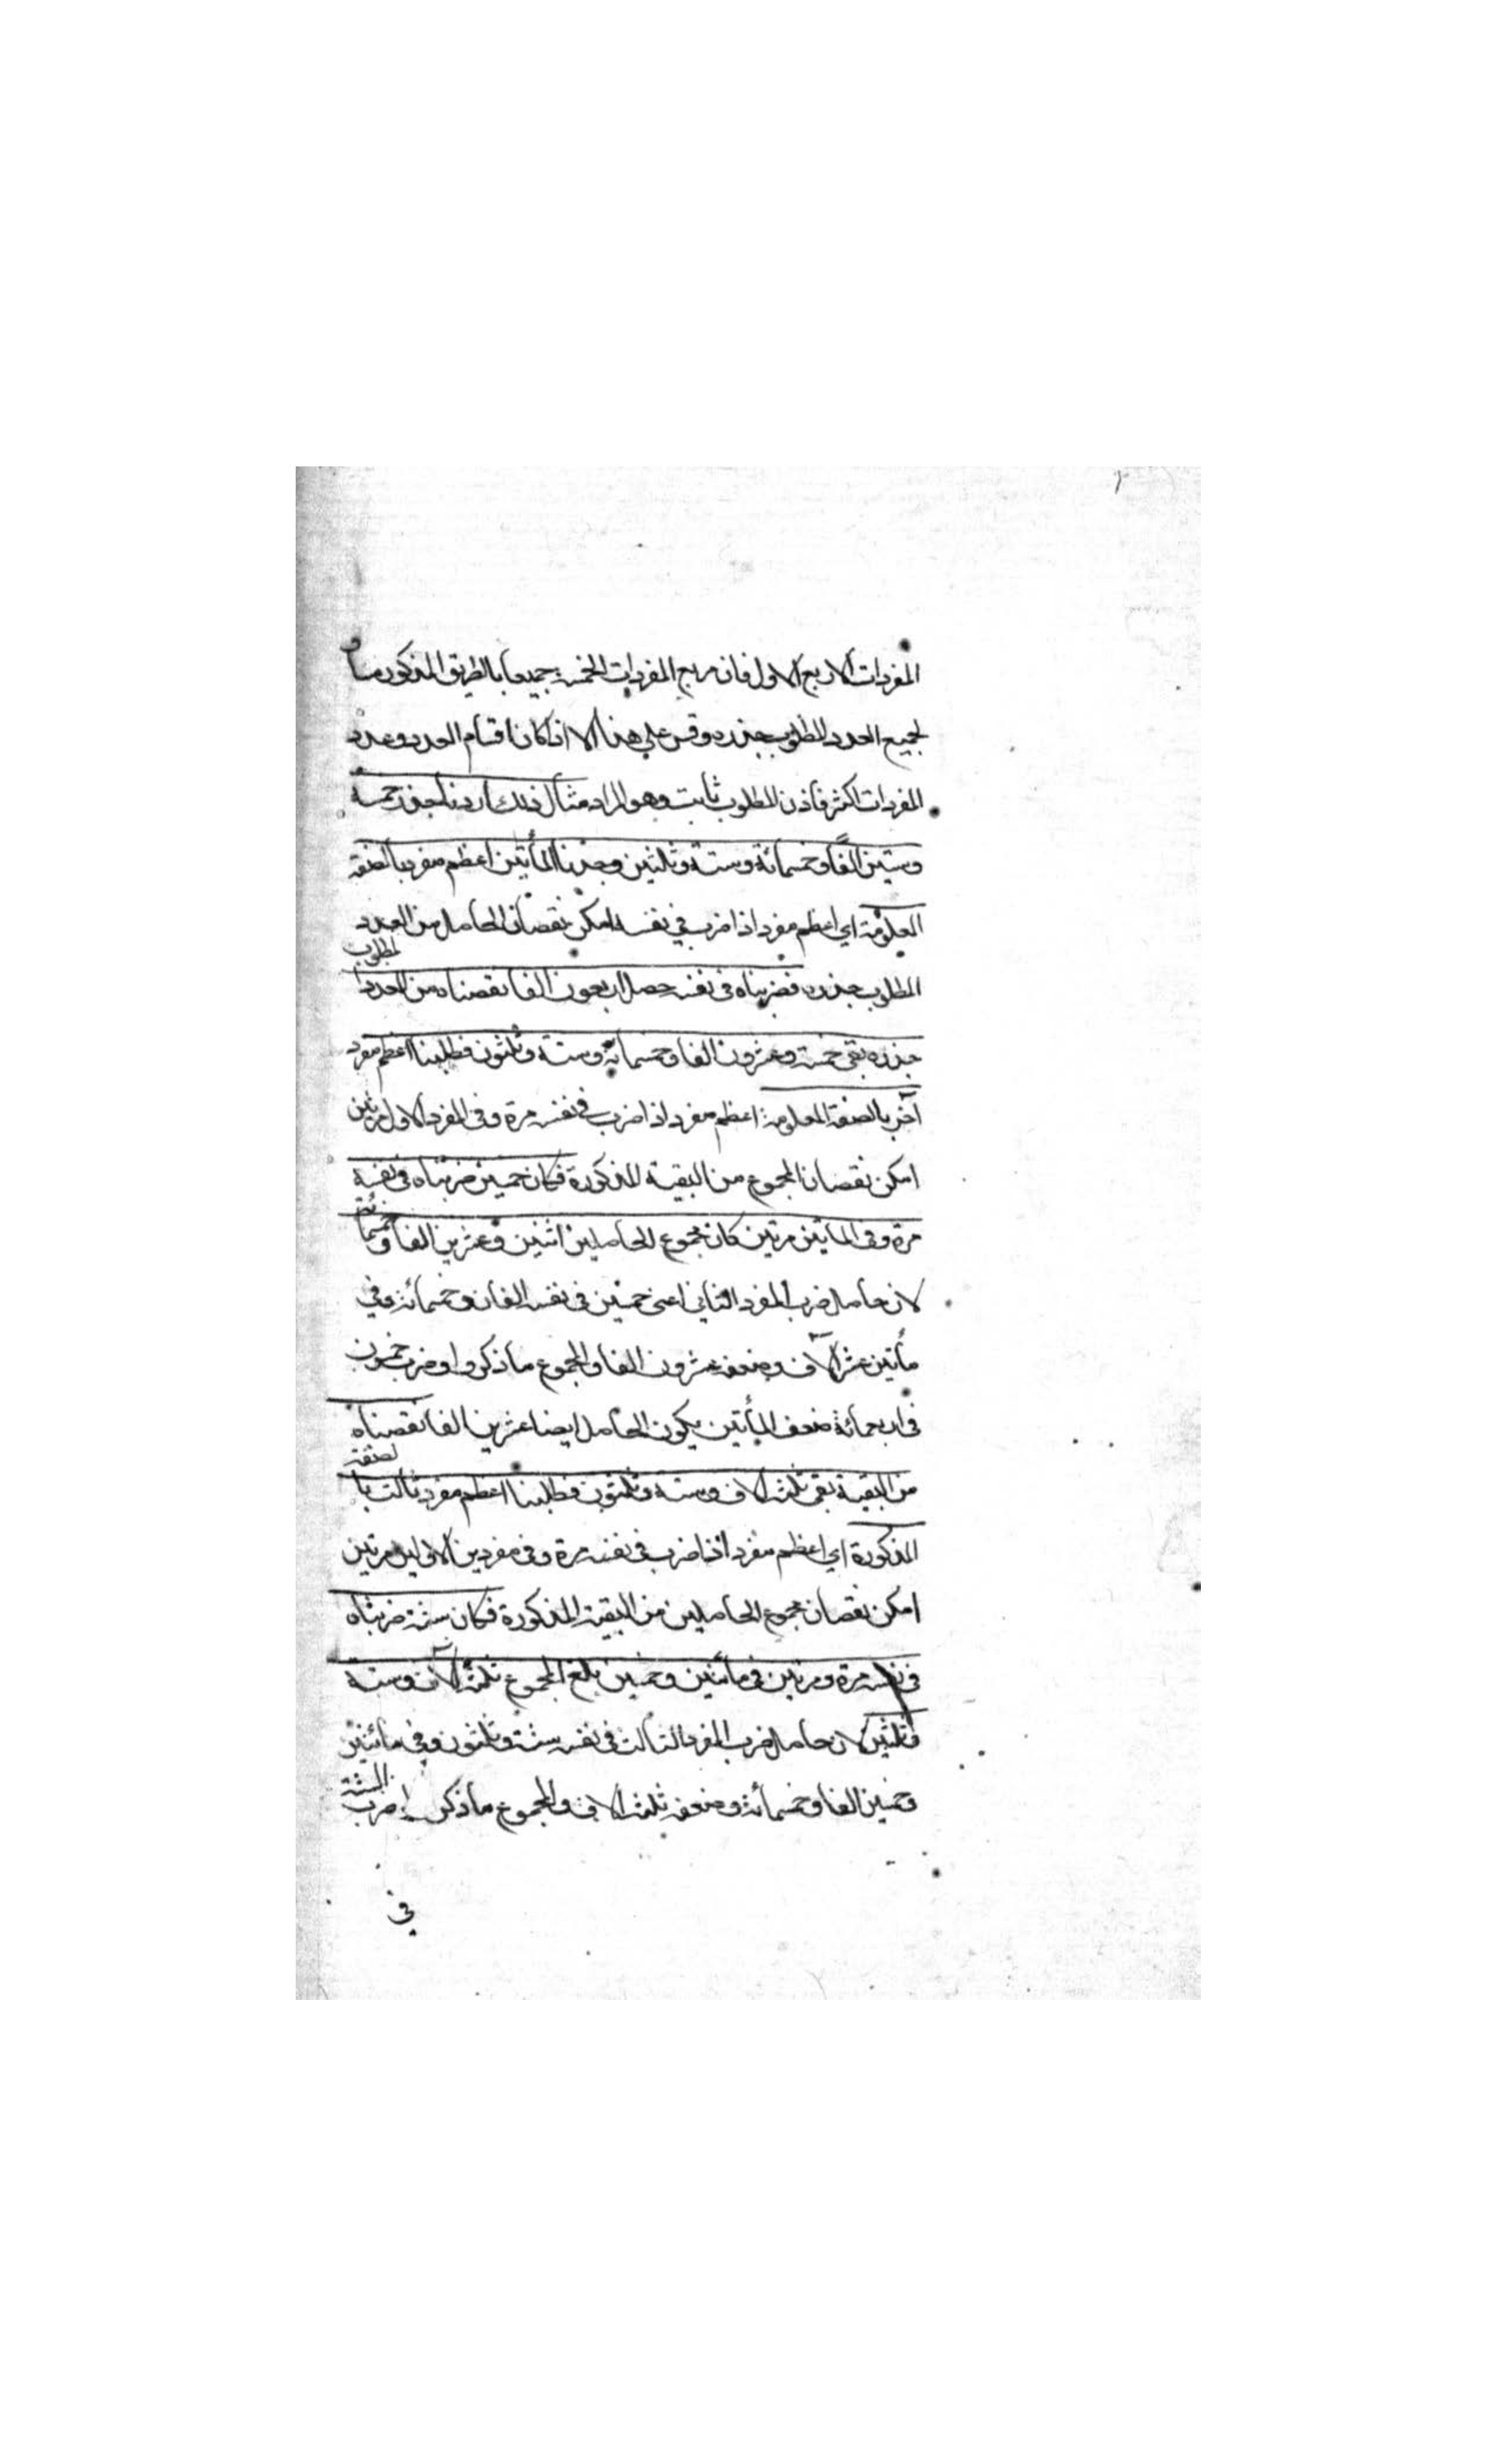 المفردات الاربع الاول فان مربع المفردات الخمسة جميعا بالطريق المذكور مساو
لجميع العدد المطلوب جذره وقس على هذا الا اذا كان اقسام العدد وعدد
المفردات اكثر فاذن المطلوب ثابت وهو المراد مثال ذلك اردنا جذر خمسة
وستين الفا وخمسمائة وستة وثلثين وجدنا المأتين اعظم مفرد بالصفة
المعلومة اي اعظم مفرد اذا ضرب في نفسه امكن نقصان الحاصل من العدد
المطلوب جذره فضربناه في نفسه حصل اربعون الفا نقصناه من العدد المطلوب
جذره بقي خمسة وعشرون الفا وخمسمائة وستة وثلثون فطلبنا اعظم مفرد
آخر بالصفة المعلومة اعظم مفرد اذا ضرب في نفسه مرة وفي المفرد الاول مرتين
امكن نقصان المجموع من البقية المذكورة فكان خمسين ضربناه في نفسه
مرة وفي المأتين مرتين كان مجموع الحاصلين اثنين وعشرين الفا وخمسمائة
لان حاصل ضرب المفرد الثاني اعنى خمسين في نفسه الفان وخمسمائة وفي
مأتين عشر آلاف وضعفه عشرون الفا والمجموع ما ذكر او ضرب خمسون
في اربعمائة ضعف المأتين يكون الحاصل ايضا عشرين الفا نقصناه
من البقية بقي ثلثه الاف وستة وثلثون فطلبنا اعظم مفرد ثالث بالصفة
المذكورة اي اعظم مفرد اذا ضرب في نفسه مرة وفي مفردين الاوليين مرتين
امكن نقصان مجموع الحاصلين من البقية المذكورة فكان ستة ضربناه
في نفسه مرة ومرتين في مأتين وخمسين بلغ المجموع ثلثة آلاف وستة
وثلثين لان حاصل ضرب المفرد الثالث في نفسه ستة وثلثون وفي مائتين
وخمسين الفا وخمسمائة وضعفه ثلثه الاف والمجموع ما ذكر او ضرب الستة
في